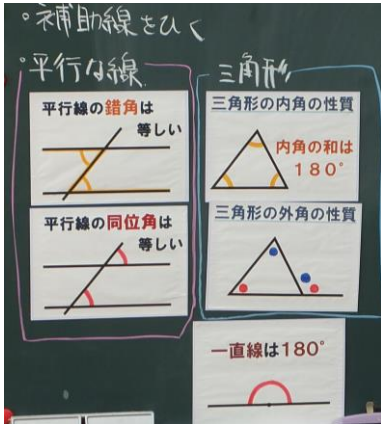 ・補助線をひく
・平行な線
平行線の錯角は
等しい
平行線の同位角は
等しい
三角形
三角形の内角の性質
内角の和は
180°
三角形の外角の性質
一直線は180°